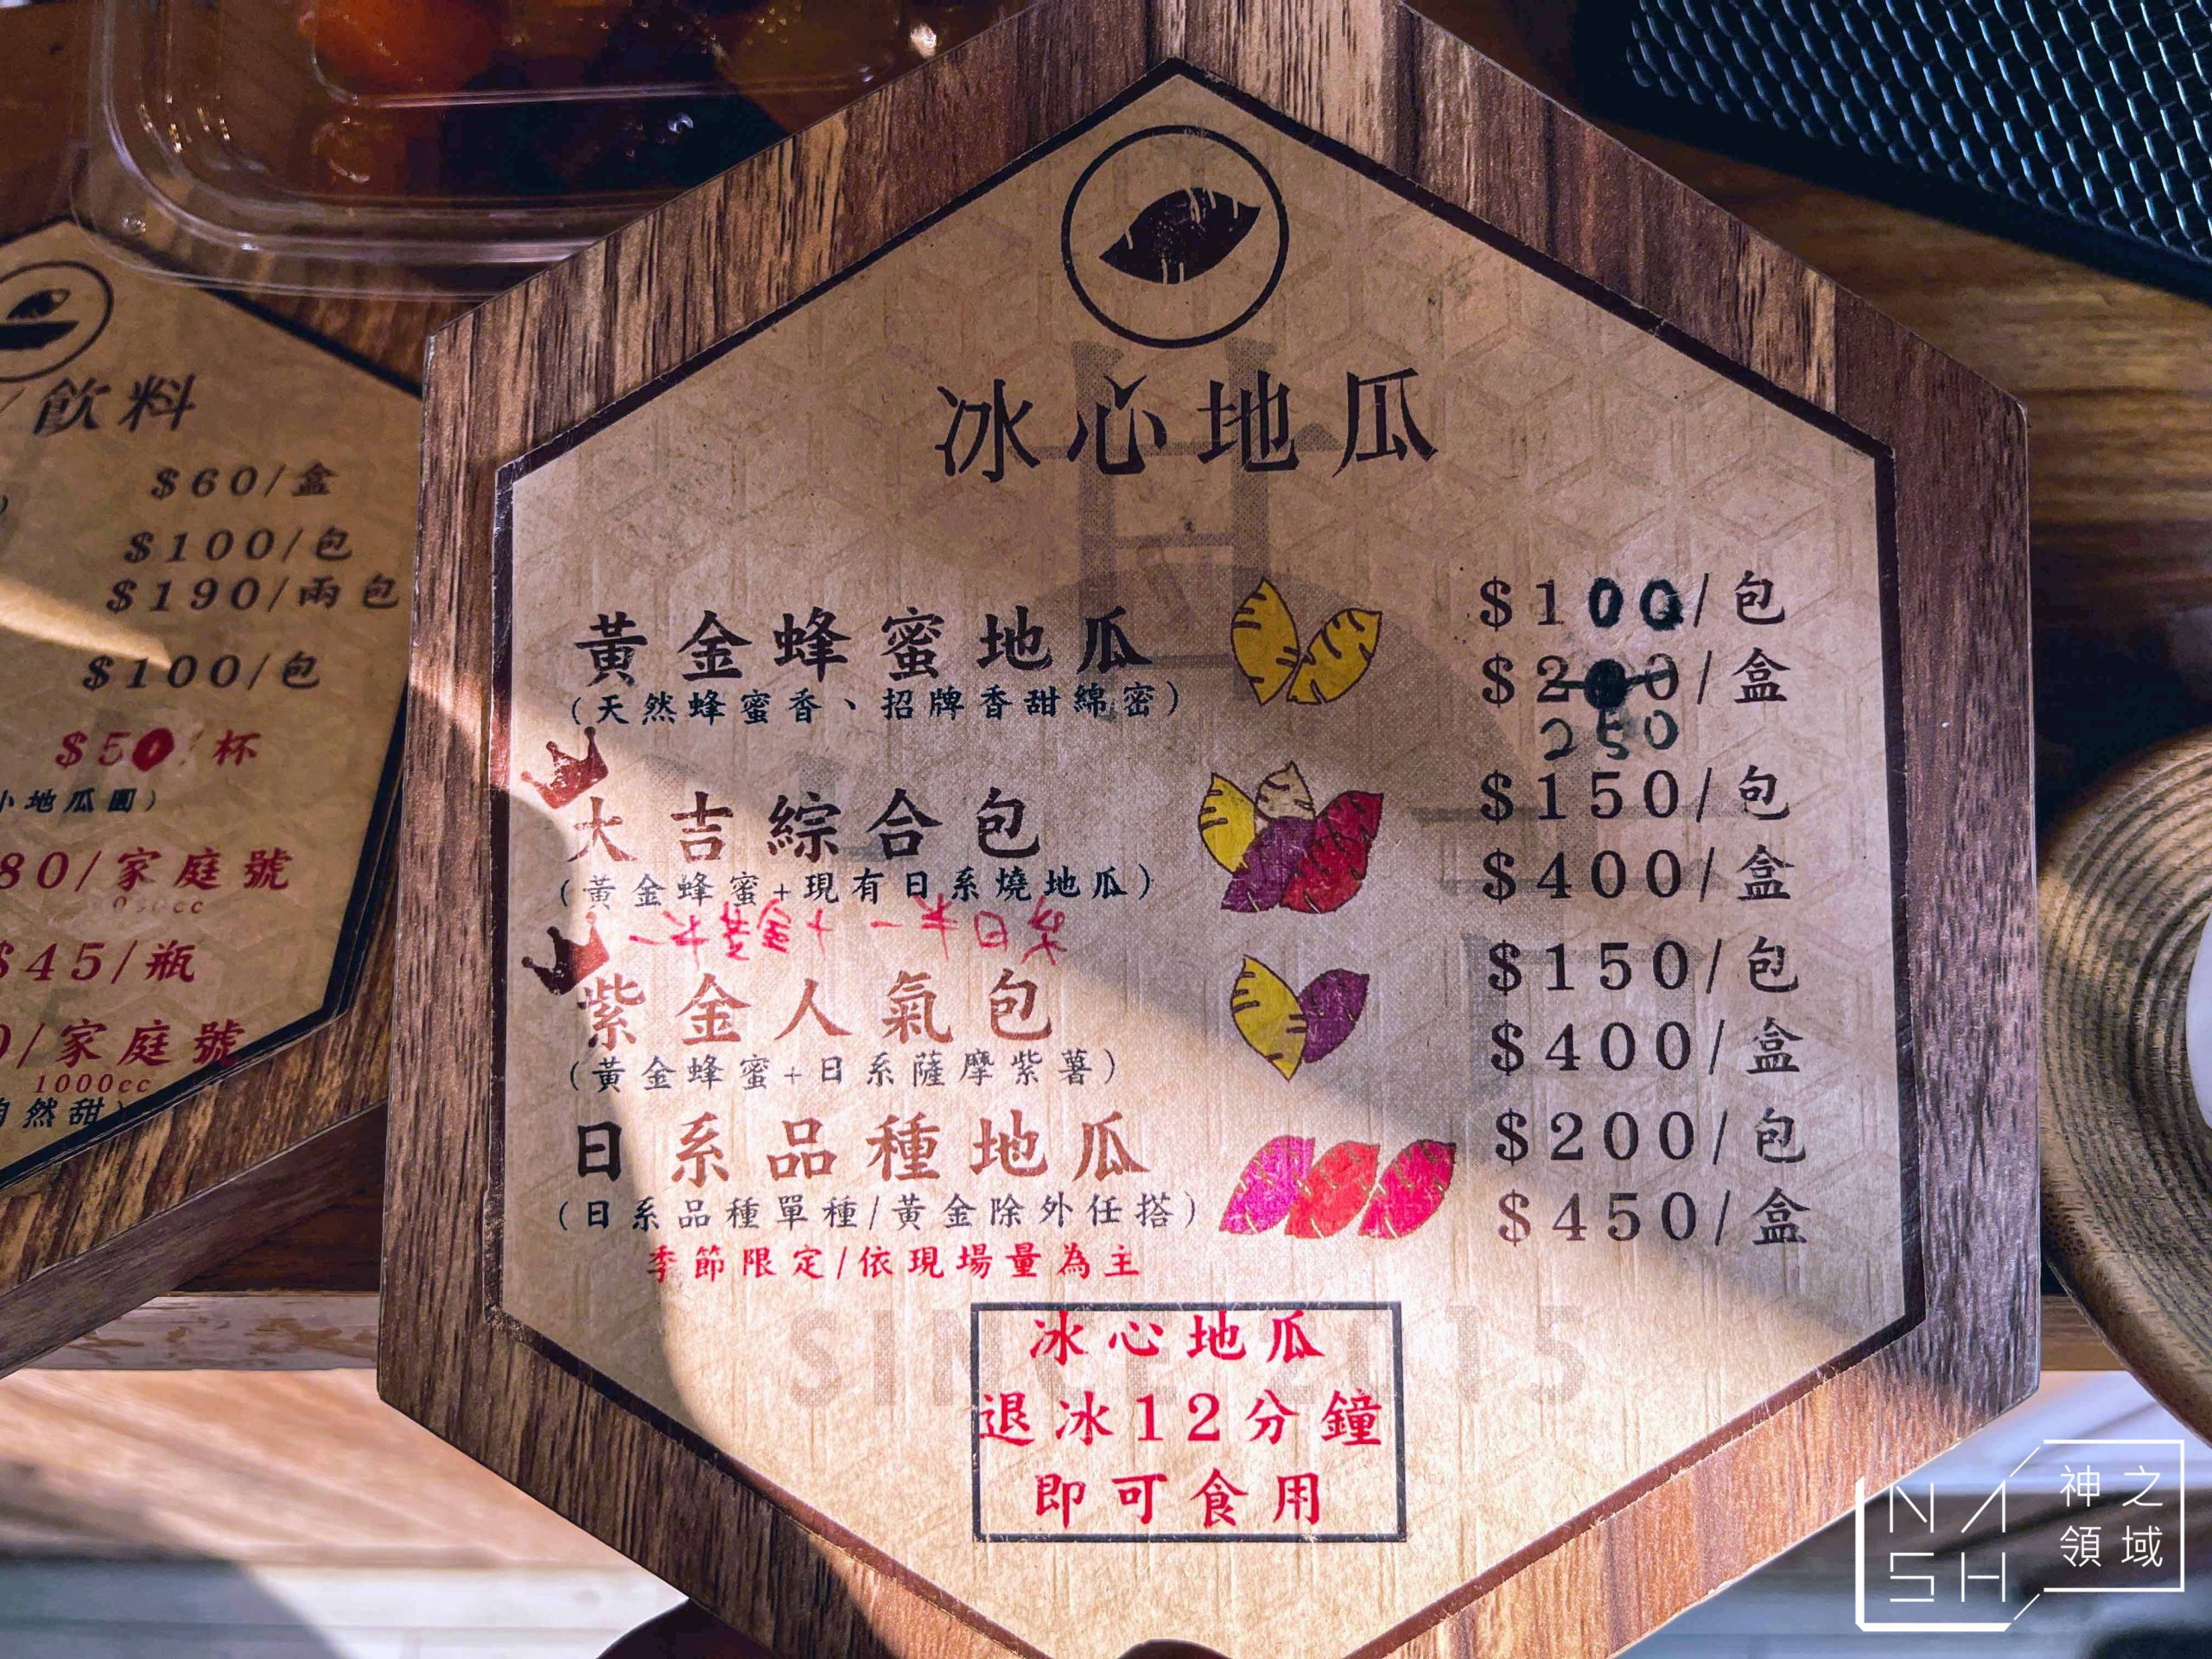 飲料
$60/盒
$100/包
$190/兩包
$100/包
$50/杯
小地瓜圓)
80/家庭號
$45/瓶
0/家庭號
1000cc
自然甜)
冰心地瓜
黃金蜂蜜地瓜
(天然蜂蜜香、招牌香甜綿密)
$100/包
$200/盒
250
大吉綜合包
(黃金蜂蜜+現有日系燒地瓜)
一半黃金+一半日系
$150/包
$400/盒
紫金人氣包
(黃金蜂蜜+日系薩摩紫薯)
$150/包
$400/盒
日系品種地瓜
(日系品種單種/黃金除外任搭)
季節限定/依現場量為主
$200/包
$450/盒
SINCE 2015
冰心地瓜
退冰12分鐘
即可食用
NASH
神之
領域